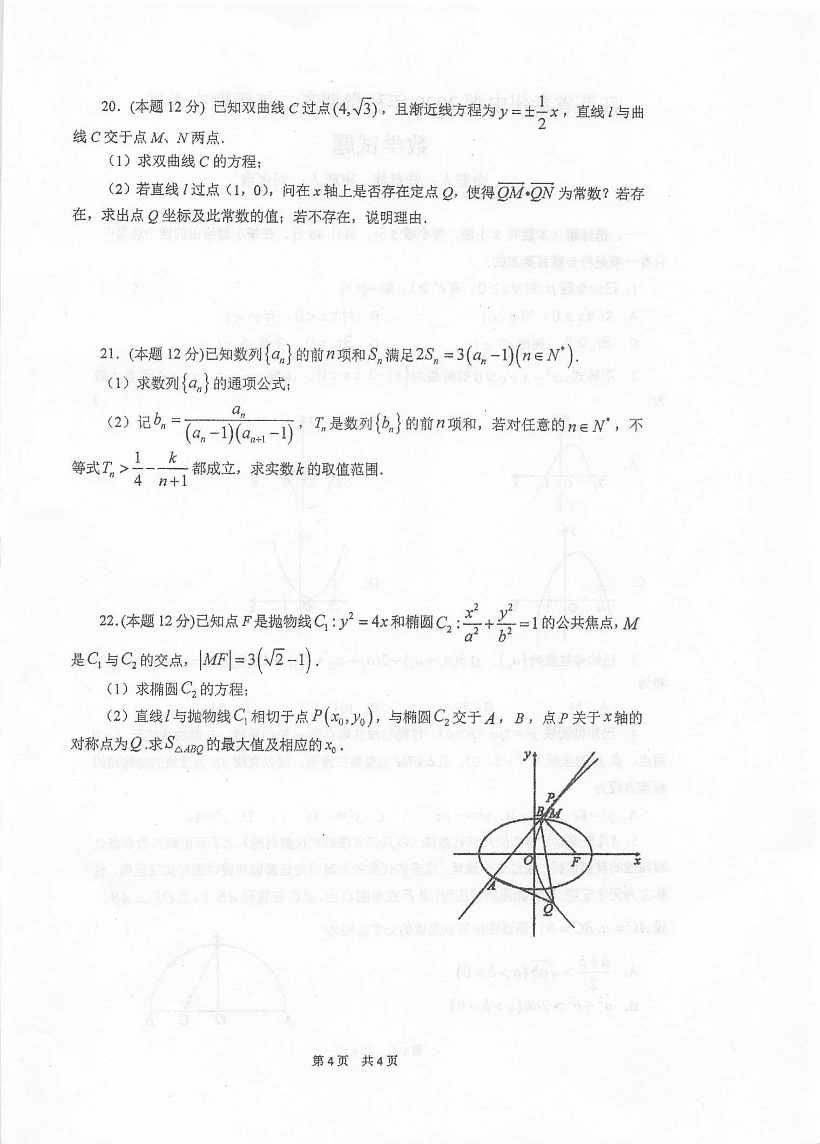 20. (本题 12 分) 已知双曲线 C 过点(4,√3), 且渐近线方程为 y=±1/2 x, 直线 l 与曲
线 C 交于点 M、N 两点.
(1) 求双曲线 C 的方程;
(2) 若直线 l 过点 (1, 0), 问在 x 轴上是否存在定点 Q, 使得 QM•QN 为常数? 若存
在, 求出点 Q 坐标及此常数的值; 若不存在, 说明理由.
21. (本题 12 分)已知数列{aₙ}的前 n 项和 Sₙ 满足 2Sₙ=3(aₙ-1)(n∈N*).
(1) 求数列{aₙ}的通项公式;
(2) 记 bₙ = aₙ/((aₙ-1)(aₙ₊₁-1)), Tₙ 是数列{bₙ}的前 n 项和, 若对任意的 n∈N*, 不
等式 Tₙ > 1/4 - k/(n+1) 都成立, 求实数 k 的取值范围.
22.(本题 12 分)已知点 F 是抛物线 C₁: y²=4x 和椭圆 C₂: x²/a² + y²/b² =1 的公共焦点, M
是 C₁ 与 C₂ 的交点, |MF|=3(√2-1).
(1) 求椭圆 C₂ 的方程;
(2) 直线 l 与抛物线 C₁ 相切于点 P(x₀,y₀), 与椭圆 C₂ 交于 A, B, 点 P 关于 x 轴的
对称点为 Q.求 S△ABQ 的最大值及相应的 x₀.
y
P
B M
O F x
A
Q
第 4 页 共 4 页